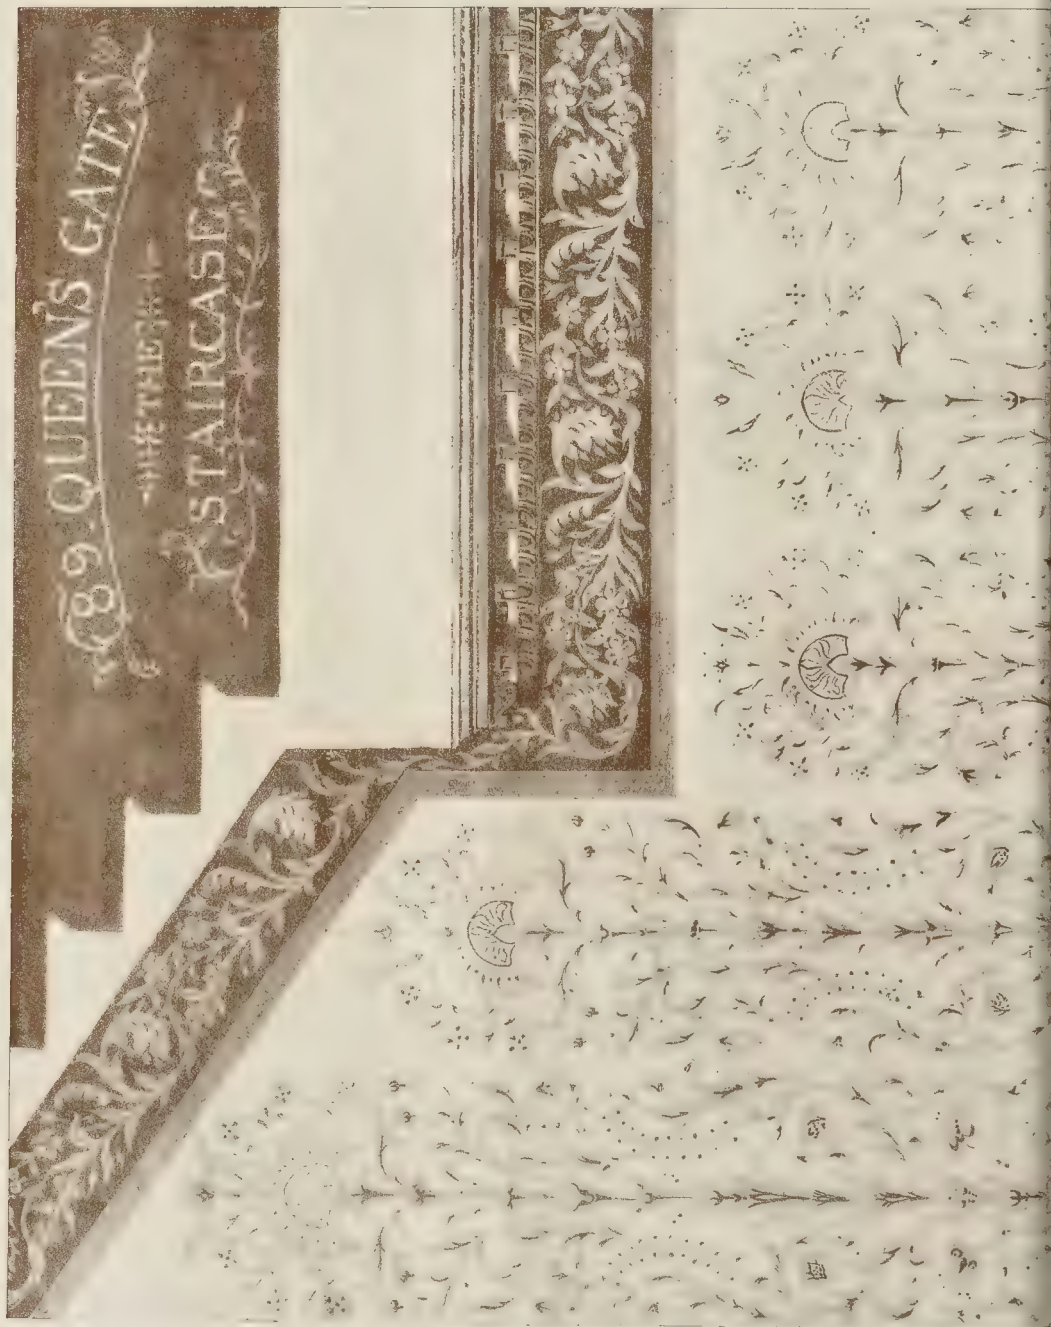 89 QUEEN'S GATE
THE
STAIRCASE